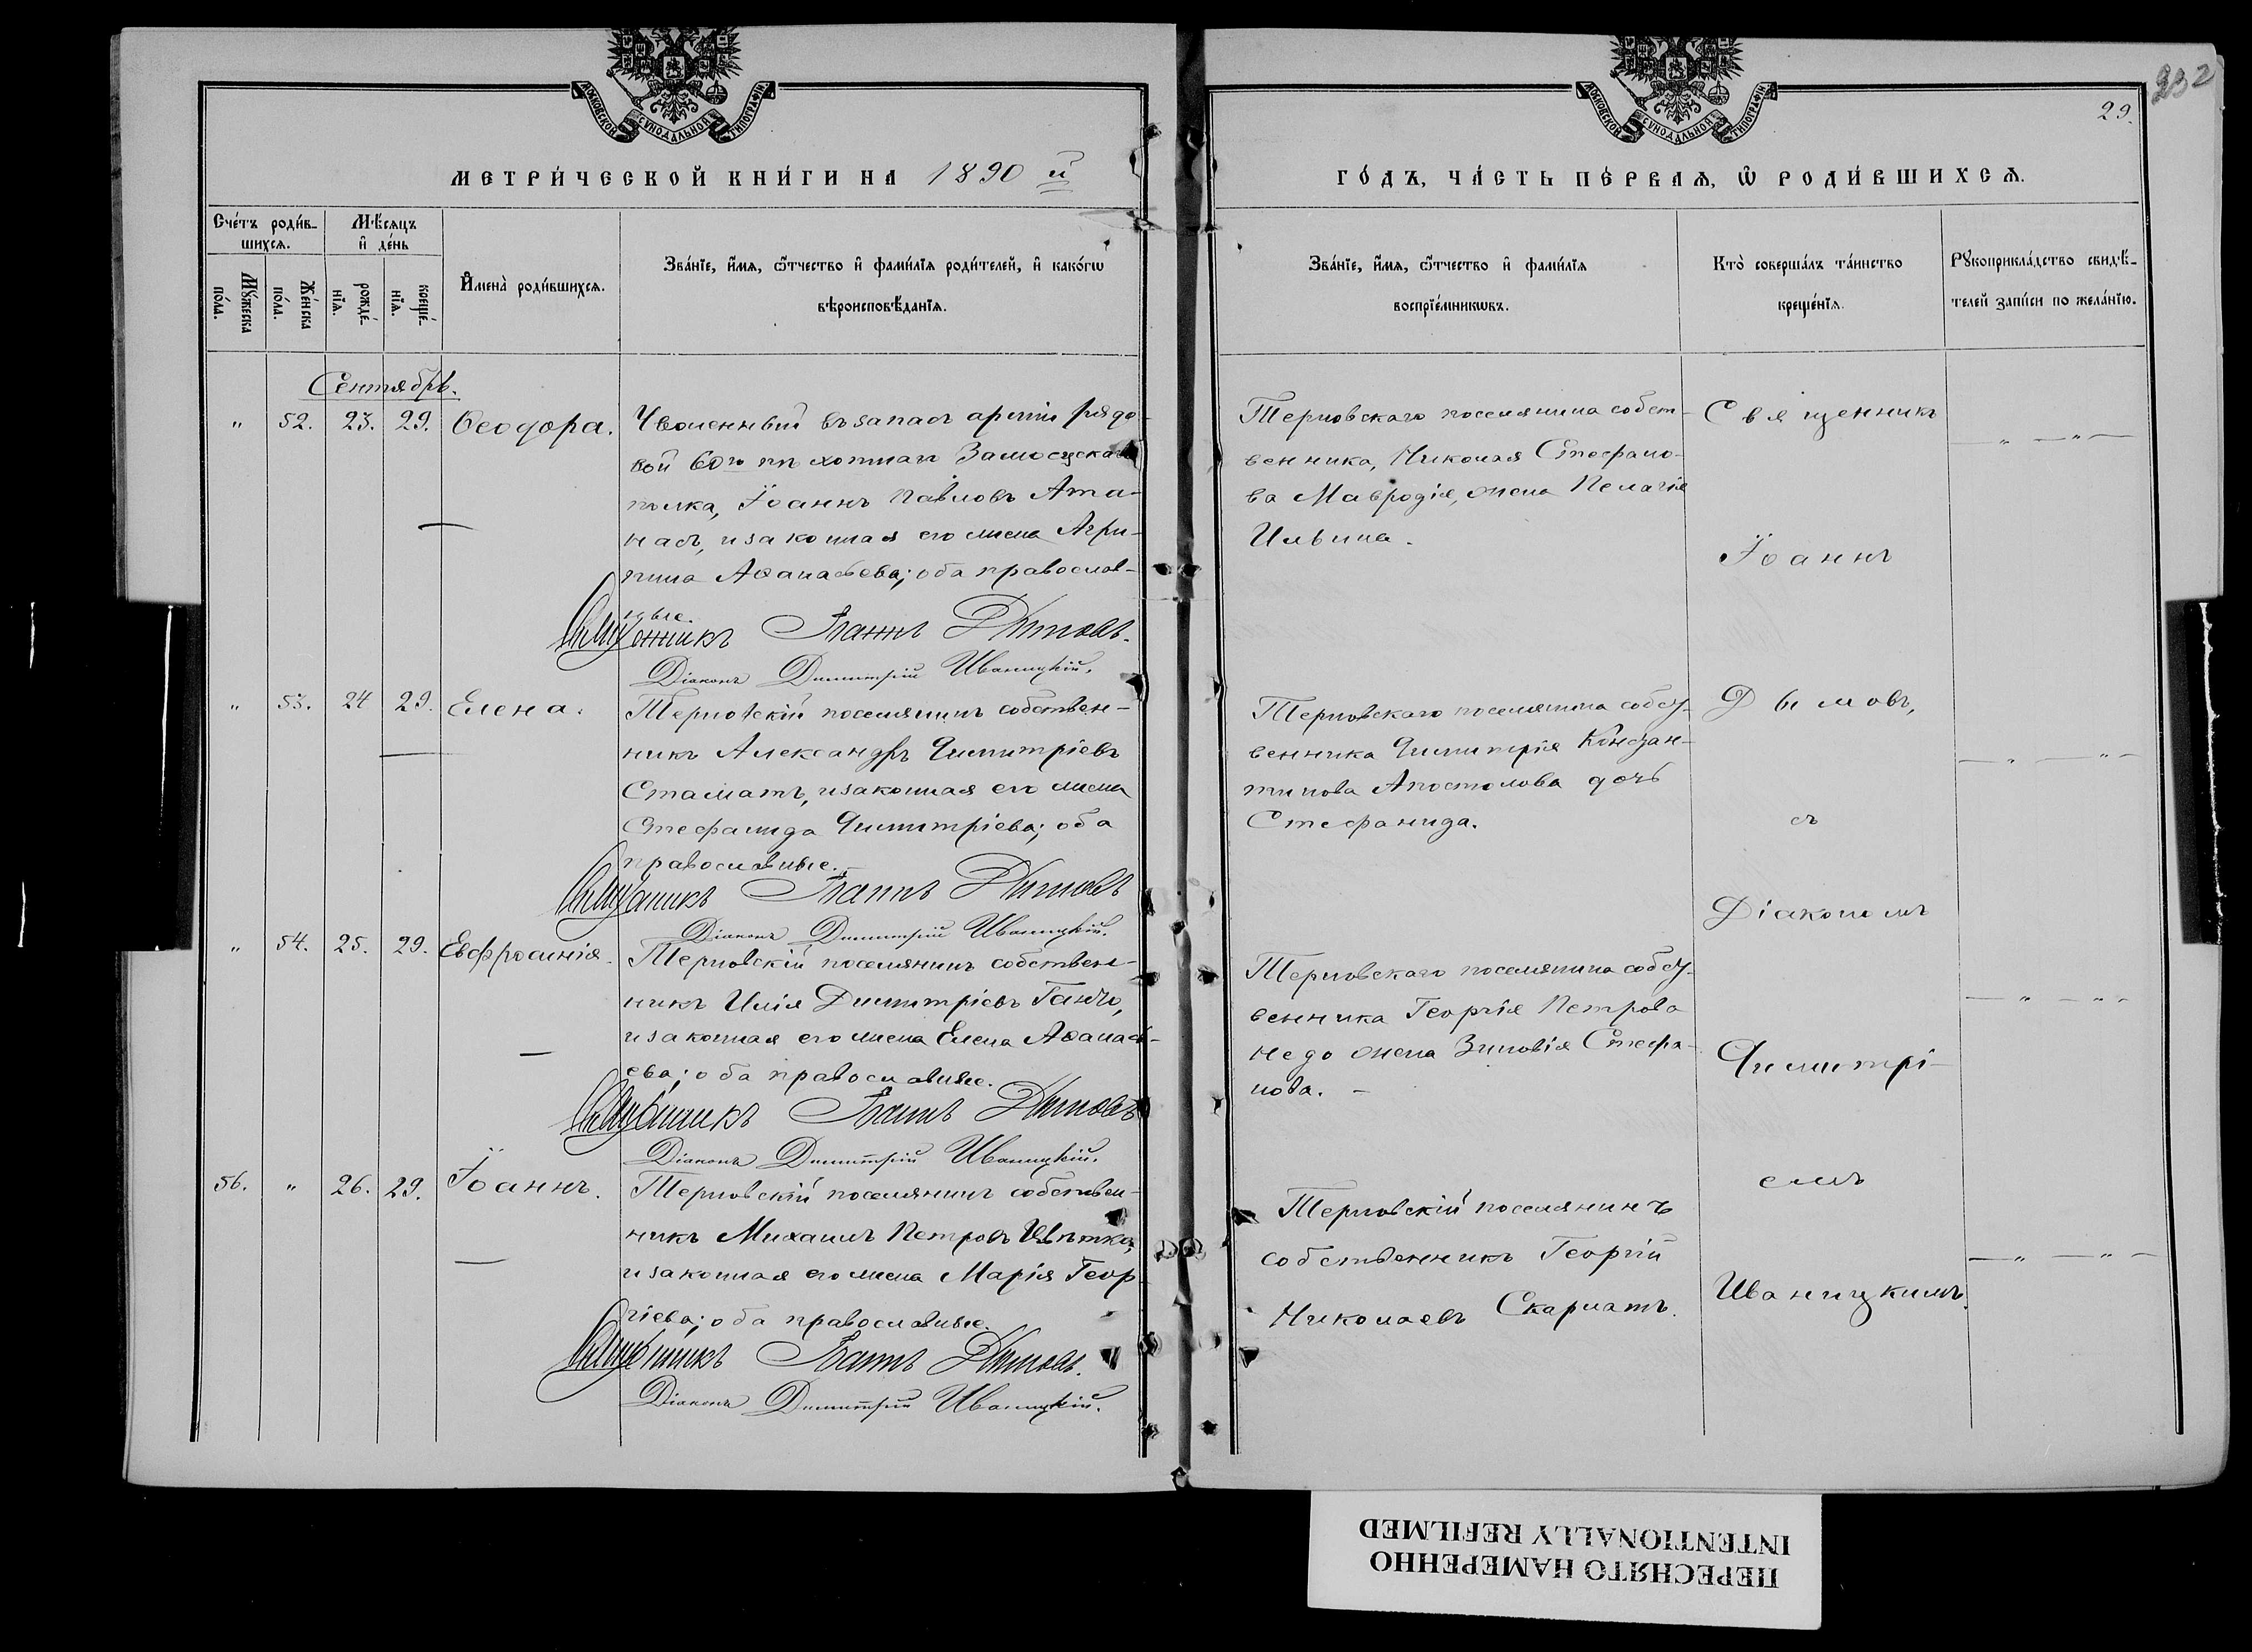 МОСКОВСКОЙ СѴНОДАЛЬНОЙ ТИПОГРАФІИ
МЕТРИ́ЧЕСКОЙ КНИ́ГИ НА 1890 й
Сче́тъ роди́в-
шихсѧ.
Мѣ́сѧцъ
и҆ де́нь
Мꙋ́жеска
по́ла.
Же́нска
по́ла.
рожде́-
нїѧ.
креще́-
нїѧ.
И҆мена̀ роди́вшихсѧ.
Зва́нїе, и҆́мѧ, ѻ҆́тчество и҆ фами́лїѧ роди́телей, и҆ како́гѡ
вѣроисповѣ́данїѧ.
Сентябрь.
" 52. 23. 29. Ѳеодора.
Уволенный въ запасъ арміи рядо-
вой 60го пѣхотнаго Замосцскаго
полка, Іоаннъ Павловъ Ата-
насъ, и законная его жена Агри-
пина Аѳанасьева; оба православ-
ные.
Священникъ Іоаннъ Дымовъ.
Діаконъ Димитрій Иваницкій.
" 53. 24 29. Елена.
Терновскій поселянинъ собствен-
никъ Александръ Димитріевъ
Стаматъ, и законная его жена
Стефанида Димитріева; оба
православные.
Священникъ Іоаннъ Дымовъ
Діаконъ Димитрій Иваницкій.
" 54. 25. 29. Евфросинія.
Терновскій поселянинъ собствен-
никъ Илія Димитріевъ Ганчо,
и законная его жена Елена Аѳанась-
ева; оба православные.
Священникъ Іоаннъ Дымовъ
Діаконъ Димитрій Иваницкій.
56. " 26. 29. Іоаннъ.
Терновскій поселянинъ собствен-
никъ Михаилъ Петровъ Цвѣтко,
и законная его жена Марія Геор-
гіева; оба православные.
Священникъ Іоаннъ Дымовъ.
Діаконъ Димитрій Иваницкій.
232
29.
МОСКОВСКОЙ СѴНОДАЛЬНОЙ ТИПОГРАФІИ
ГО́ДЪ, ЧА́СТЬ ПЕ́РВАѦ, Ѡ҆ РОДИ́ВШИХСѦ.
Зва́нїе, и҆́мѧ, ѻ҆́тчество и҆ фами́лїѧ
воспрїе́мникѡвъ.
Кто̀ соверша́лъ та́инство
креще́нїѧ.
Рꙋкоприкла́дство свидѣ́-
телей за́писи по жела́нїю.
Терновскаго поселянина собст-
венника, Николая Стефано-
ва Мавродія, жена Пелагія
Ильина.
Терновскаго поселянина собст-
венника Димитрія Констан-
тинова Апостолова дочь
Стефанида.
Терновскаго поселянина собст-
венника Георгія Петрова
Недо жена Зиновія Стефа-
нова. -
Терновскій поселянинъ
собственникъ Георгій
Николаевъ Скарлатъ.
Священникъ
Іоаннъ
Дымовъ,
съ
Діакономъ
Димитрі-
емъ
Иваницкимъ.
— " — " —
— " — " —
— " — " —
— " — " —
ПЕРЕСНЯТО НАМЕРЕННО
INTENTIONALLY REFILMED